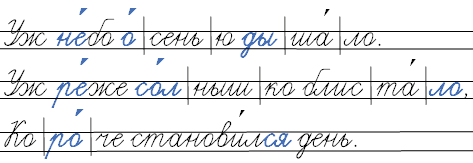 Уж не́бо о́|сень|ю ды|ша́|ло.
Уж ре́же со́л|ныш|ко блис|та́|ло,
Ко|ро́|че станови́лся день.